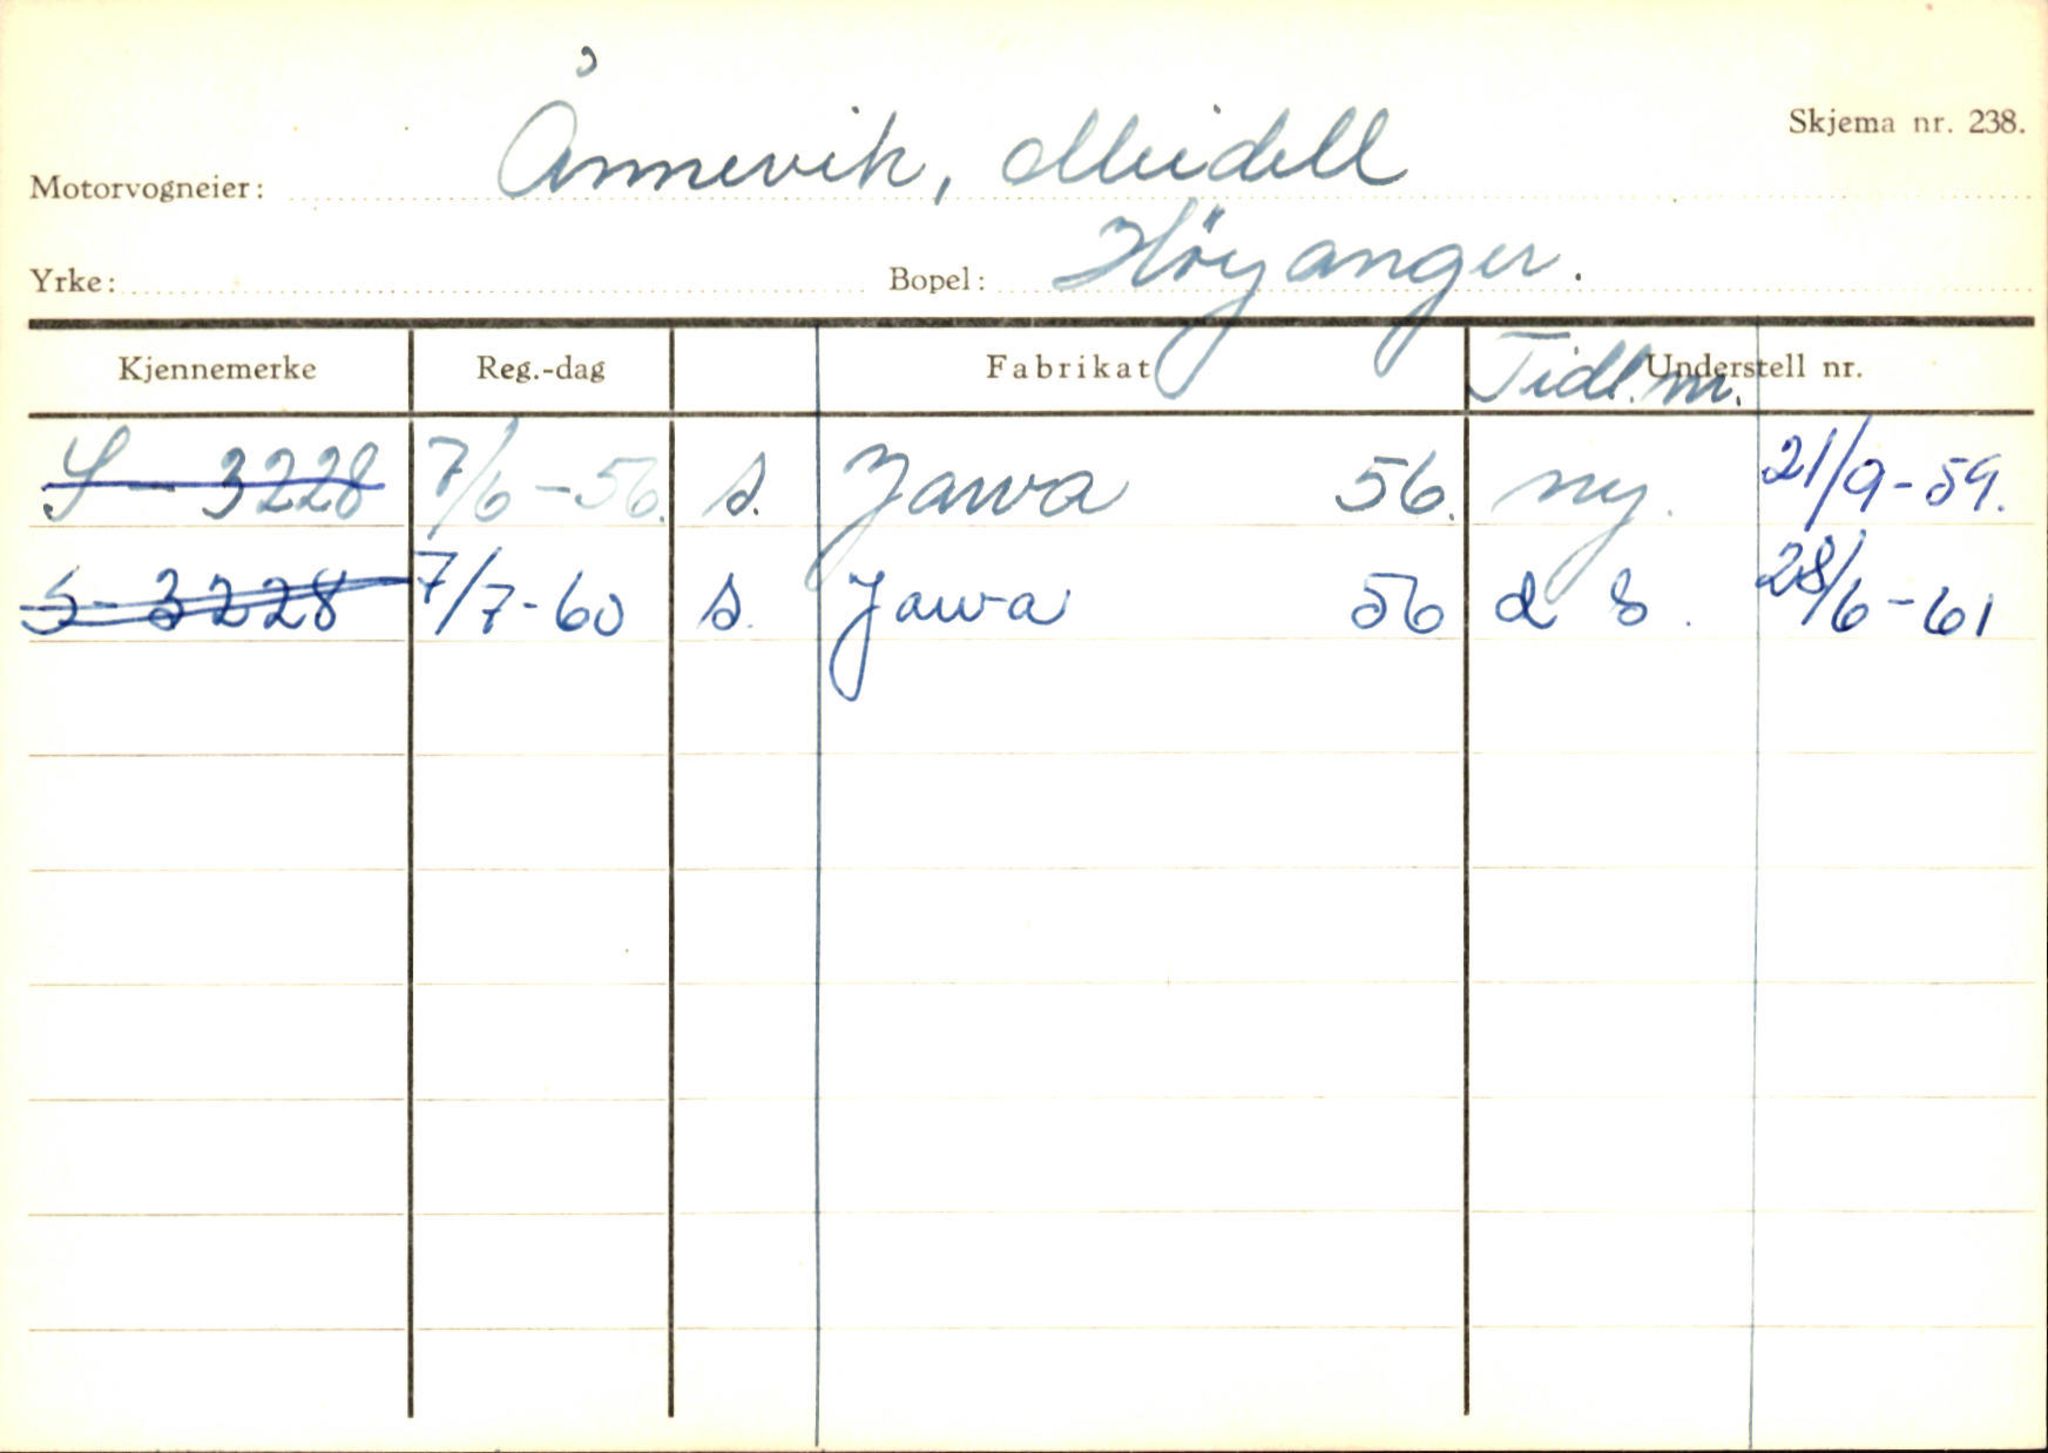 Skjema nr. 238.
Motorvogneier: Ånnevik, Meidell
Yrke: Bopel: Høyanger.
Kjennemerke Reg.-dag Fabrikat Tidl. m. Understell nr.
S - 3228 7/6-56. s. Jawa 56. ny. 21/9-59.
S - 3228 7/7-60 s. Jawa 56 d s. 28/6-61